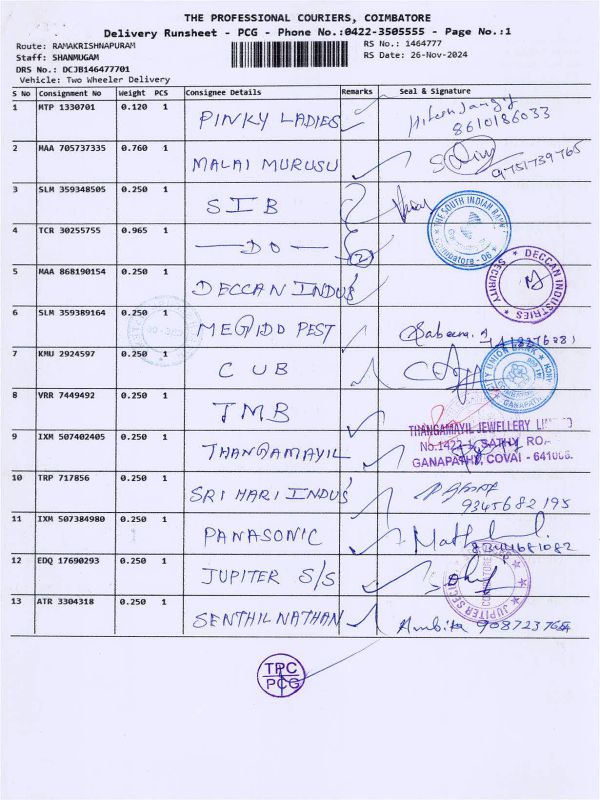 THE PROFESSIONAL COURIERS, COIMBATORE
Delivery Runsheet - PCG - Phone No.:0422-3505555 - Page No.:1
Route: RAMAKRISHNAPURAM RS No.: 1464777
Staff: SHANMUGAM RS Date: 26-Nov-2024
DRS No.: DCJB146477701
Vehicle: Two Wheeler Delivery
S No Consignment No Weight PCS Consignee Details Remarks Seal & Signature
1 MTP 1330701 0.120 1 PINKY LADIES
8610186033
2 MAA 705737335 0.760 1 MALAI MURUSU
9751739765
3 SLM 359348505 0.250 1 SIB
THE SOUTH INDIAN BANK
4 TCR 30255755 0.965 1 — DO — 2
5 MAA 868190154 0.250 1 DECCAN INDUS
DECCAN INDUSTRIES SECURITY
6 SLM 359389164 0.250 1 MEGIDD PEST
7 KMU 2924597 0.250 1 CUB
CITY UNION BANK
GANAPATHY
8 VRR 7449492 0.250 1 TMB
THANGAMAYIL JEWELLERY LIMITED
9 IXM 507402405 0.250 1 THANGAMAYIL
GANAPATHY, COVAI - 641006.
10 TRP 717856 0.250 1 SRI HARI INDUS
9345682195
11 IXM 507384980 0.250 1 PANASONIC
12 EDQ 17690293 0.250 1 JUPITER S/S
13 ATR 3304318 0.250 1 SENTHILNATHAN Ambika
TPC
PCG